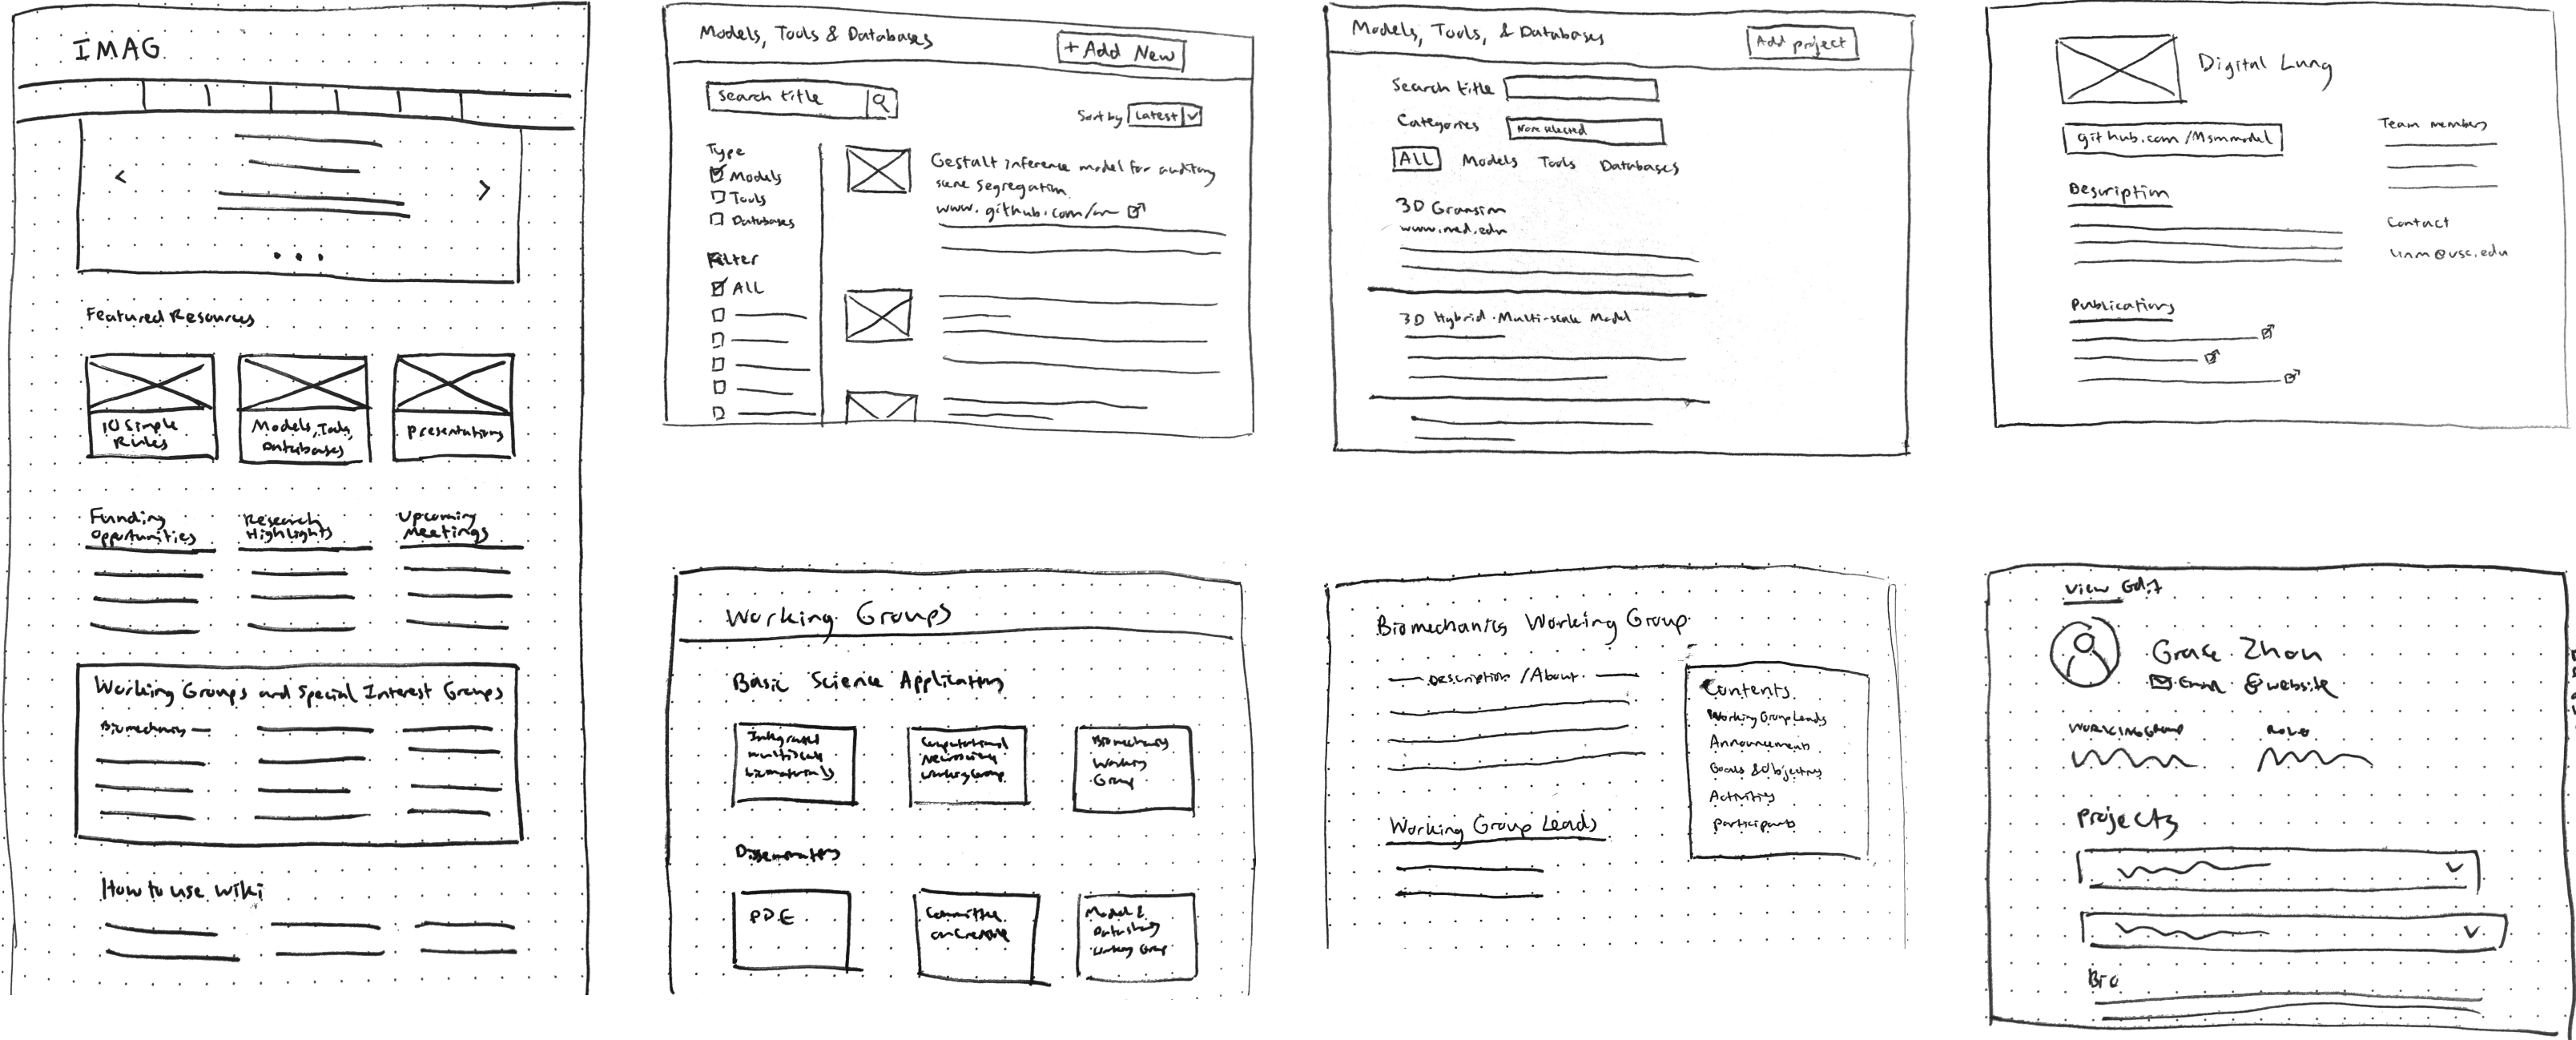 IMAG
Featured Resources
10 Simple
Rules
Models, Tools,
Databases
Presentations
Funding
Opportunities
Research
Highlights
Upcoming
Meetings
Working Groups and Special Interest Groups
Biomechanics
How to use wiki
Models, Tools & Databases
+ Add New
Search title
Sort by Latest
Type
Models
Tools
Databases
Filter
ALL
Gestalt inference model for auditory
scene segregation
www.github.com/m
Models, Tools, & Databases
Add project
Search title
Categories
None selected
ALL Models Tools Databases
3D Gransim
www.med.edu
3D Hybrid Multi-scale Model
Digital Lung
github.com/Msmmodel
Team members
Description
Contact
@usc.edu
Publications
Working Groups
Basic Science Applications
Integrated
multiscale
biomaterials
Computational
Neuroscience
Working Group
Biomechanics
Working
Group
PDE
Committee
on Credible
Model &
Data sharing
Working Group
Biomechanics Working Group
Description / About
Working Group Leads
Contents
Working Group Leads
Announcements
Goals & Objectives
Activities
Participants
View Edit
Grace Zhou
Email website
Working Group
Role
Projects
Bio